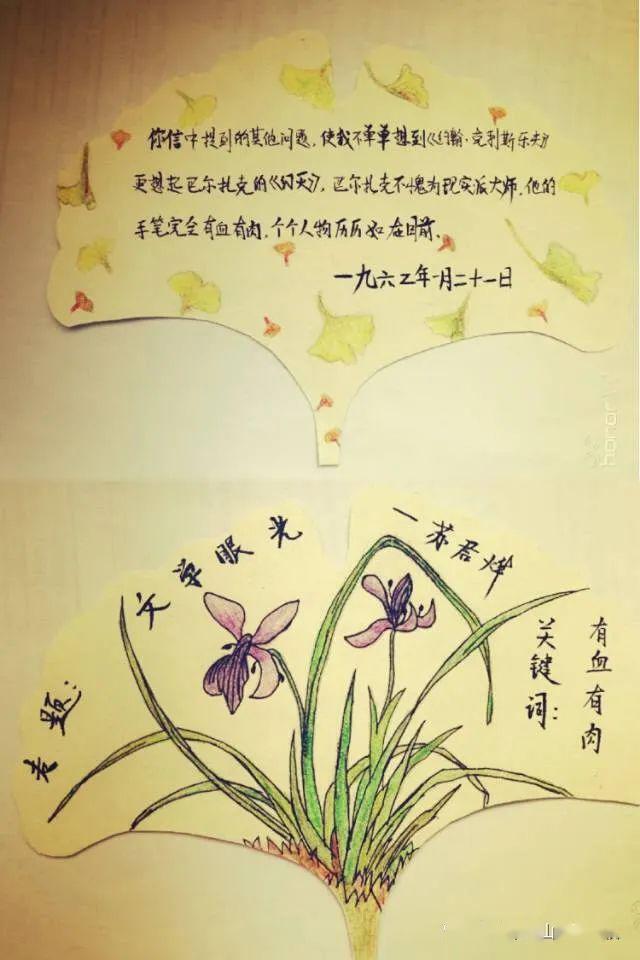 你信中提到的其他问题，使我不单单想到《约翰·克利斯朵夫》
更想起巴尔扎克的《幻灭》，巴尔扎克不愧为现实派大师，他的
手笔完全有血有肉，个个人物历历如在目前。
一九六三年一月二十一日
honor
专题：文学眼光
—苏君烨
关键词：
有血有肉
山